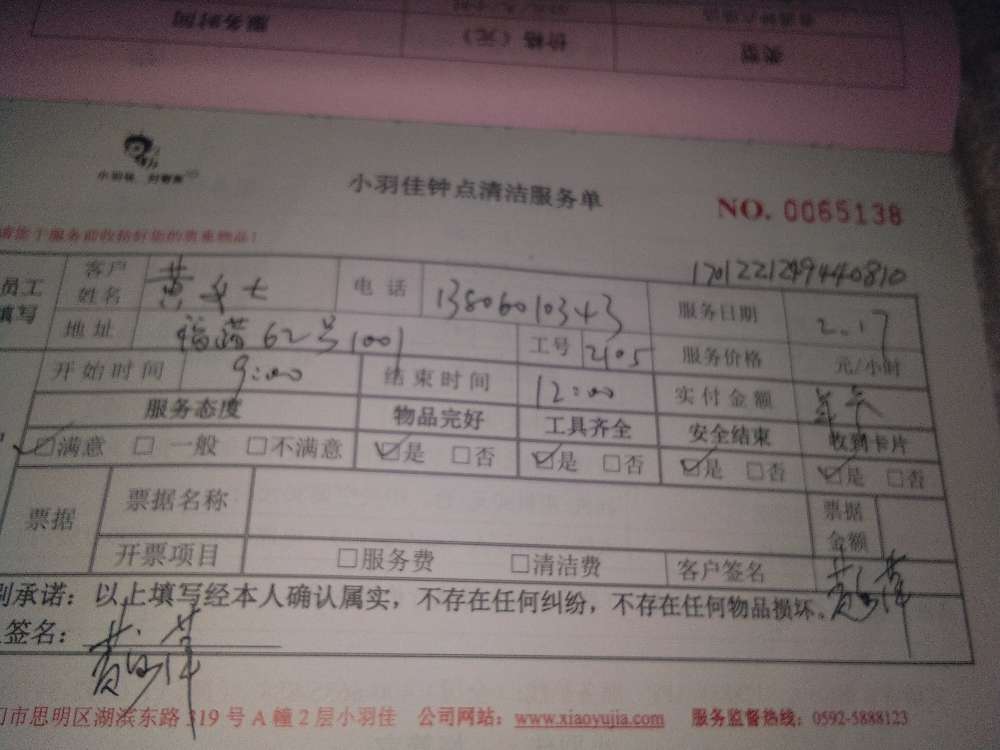 服务时间 价格（元） 类型
小羽佳钟点清洁服务单
NO. 0065138
请您于服务前收拾好您的贵重物品！
1701221249440810
员工填写 客户姓名 黄女士 电话 13806010343 服务日期 2.17
地址 62号1001 工号 2105 服务价格 元/小时
开始时间 9:00 结束时间 12:00 实付金额 年卡
服务态度 物品完好 工具齐全 安全结束 收到卡片
☑满意 □一般 □不满意 ☑是 □否 ☑是 □否 ☑是 □否 ☑是 □否
票据 票据名称 票据金额
开票项目 □服务费 □清洁费 客户签名
别承诺：以上填写经本人确认属实，不存在任何纠纷，不存在任何物品损坏。
签名：
门市思明区湖滨东路 319 号 A 幢 2 层小羽佳 公司网站：www.xiaoyujia.com 服务监督热线：0592-5888123